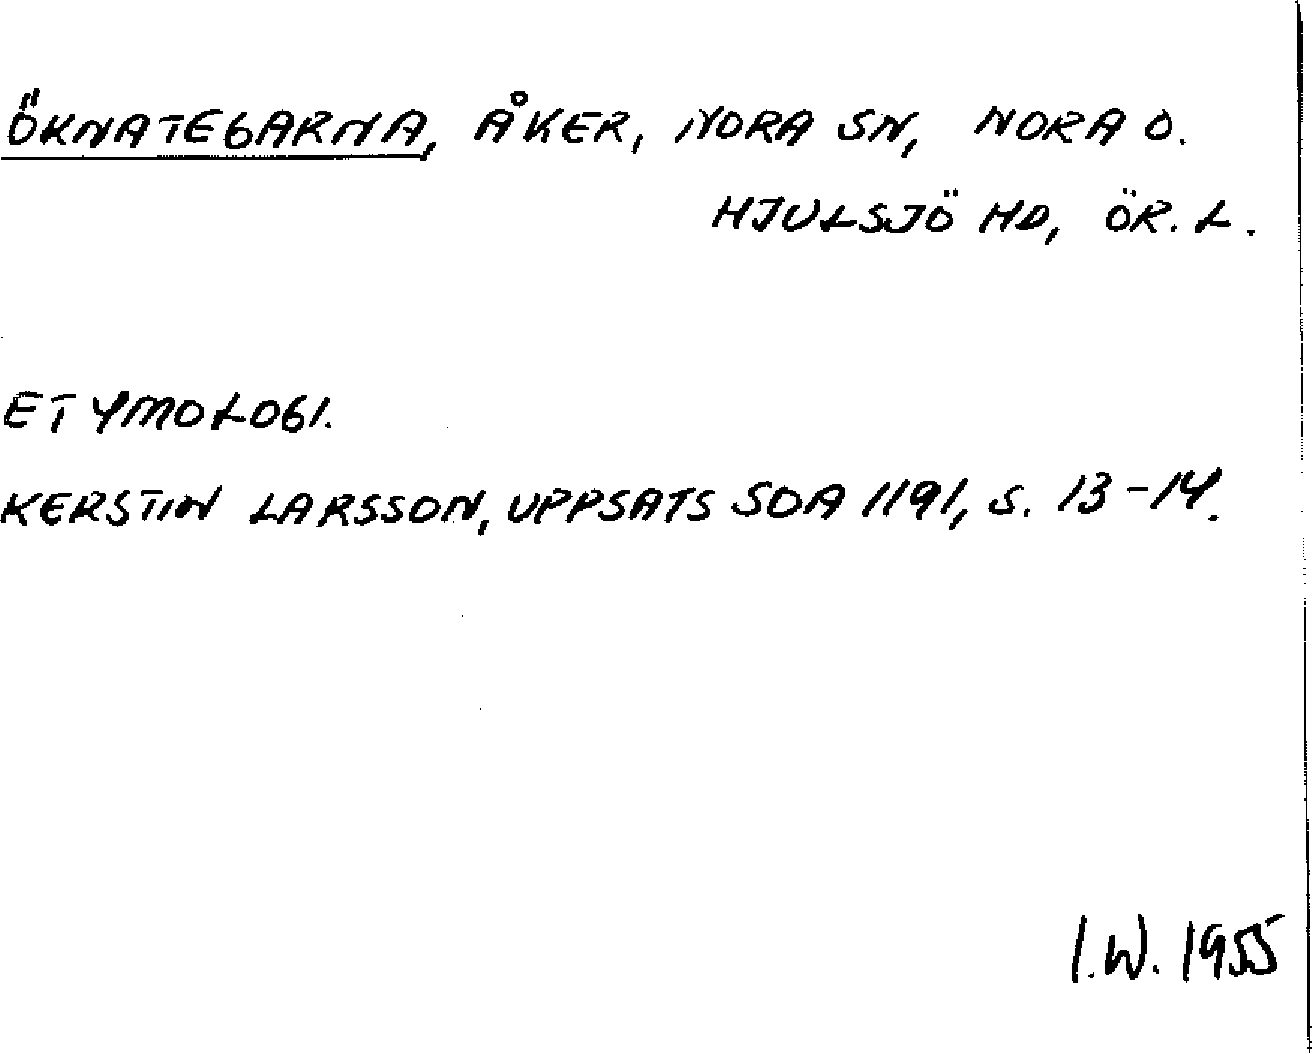 ÖKNATEGARNA, ÅKER, NORA SN, NORA O.
HJULSJÖ HD, ÖR. L.
ETYMOLOGI.
KERSTIN LARSSON, UPPSATS SOA 1191, S. 13-14.
I.W. 1955